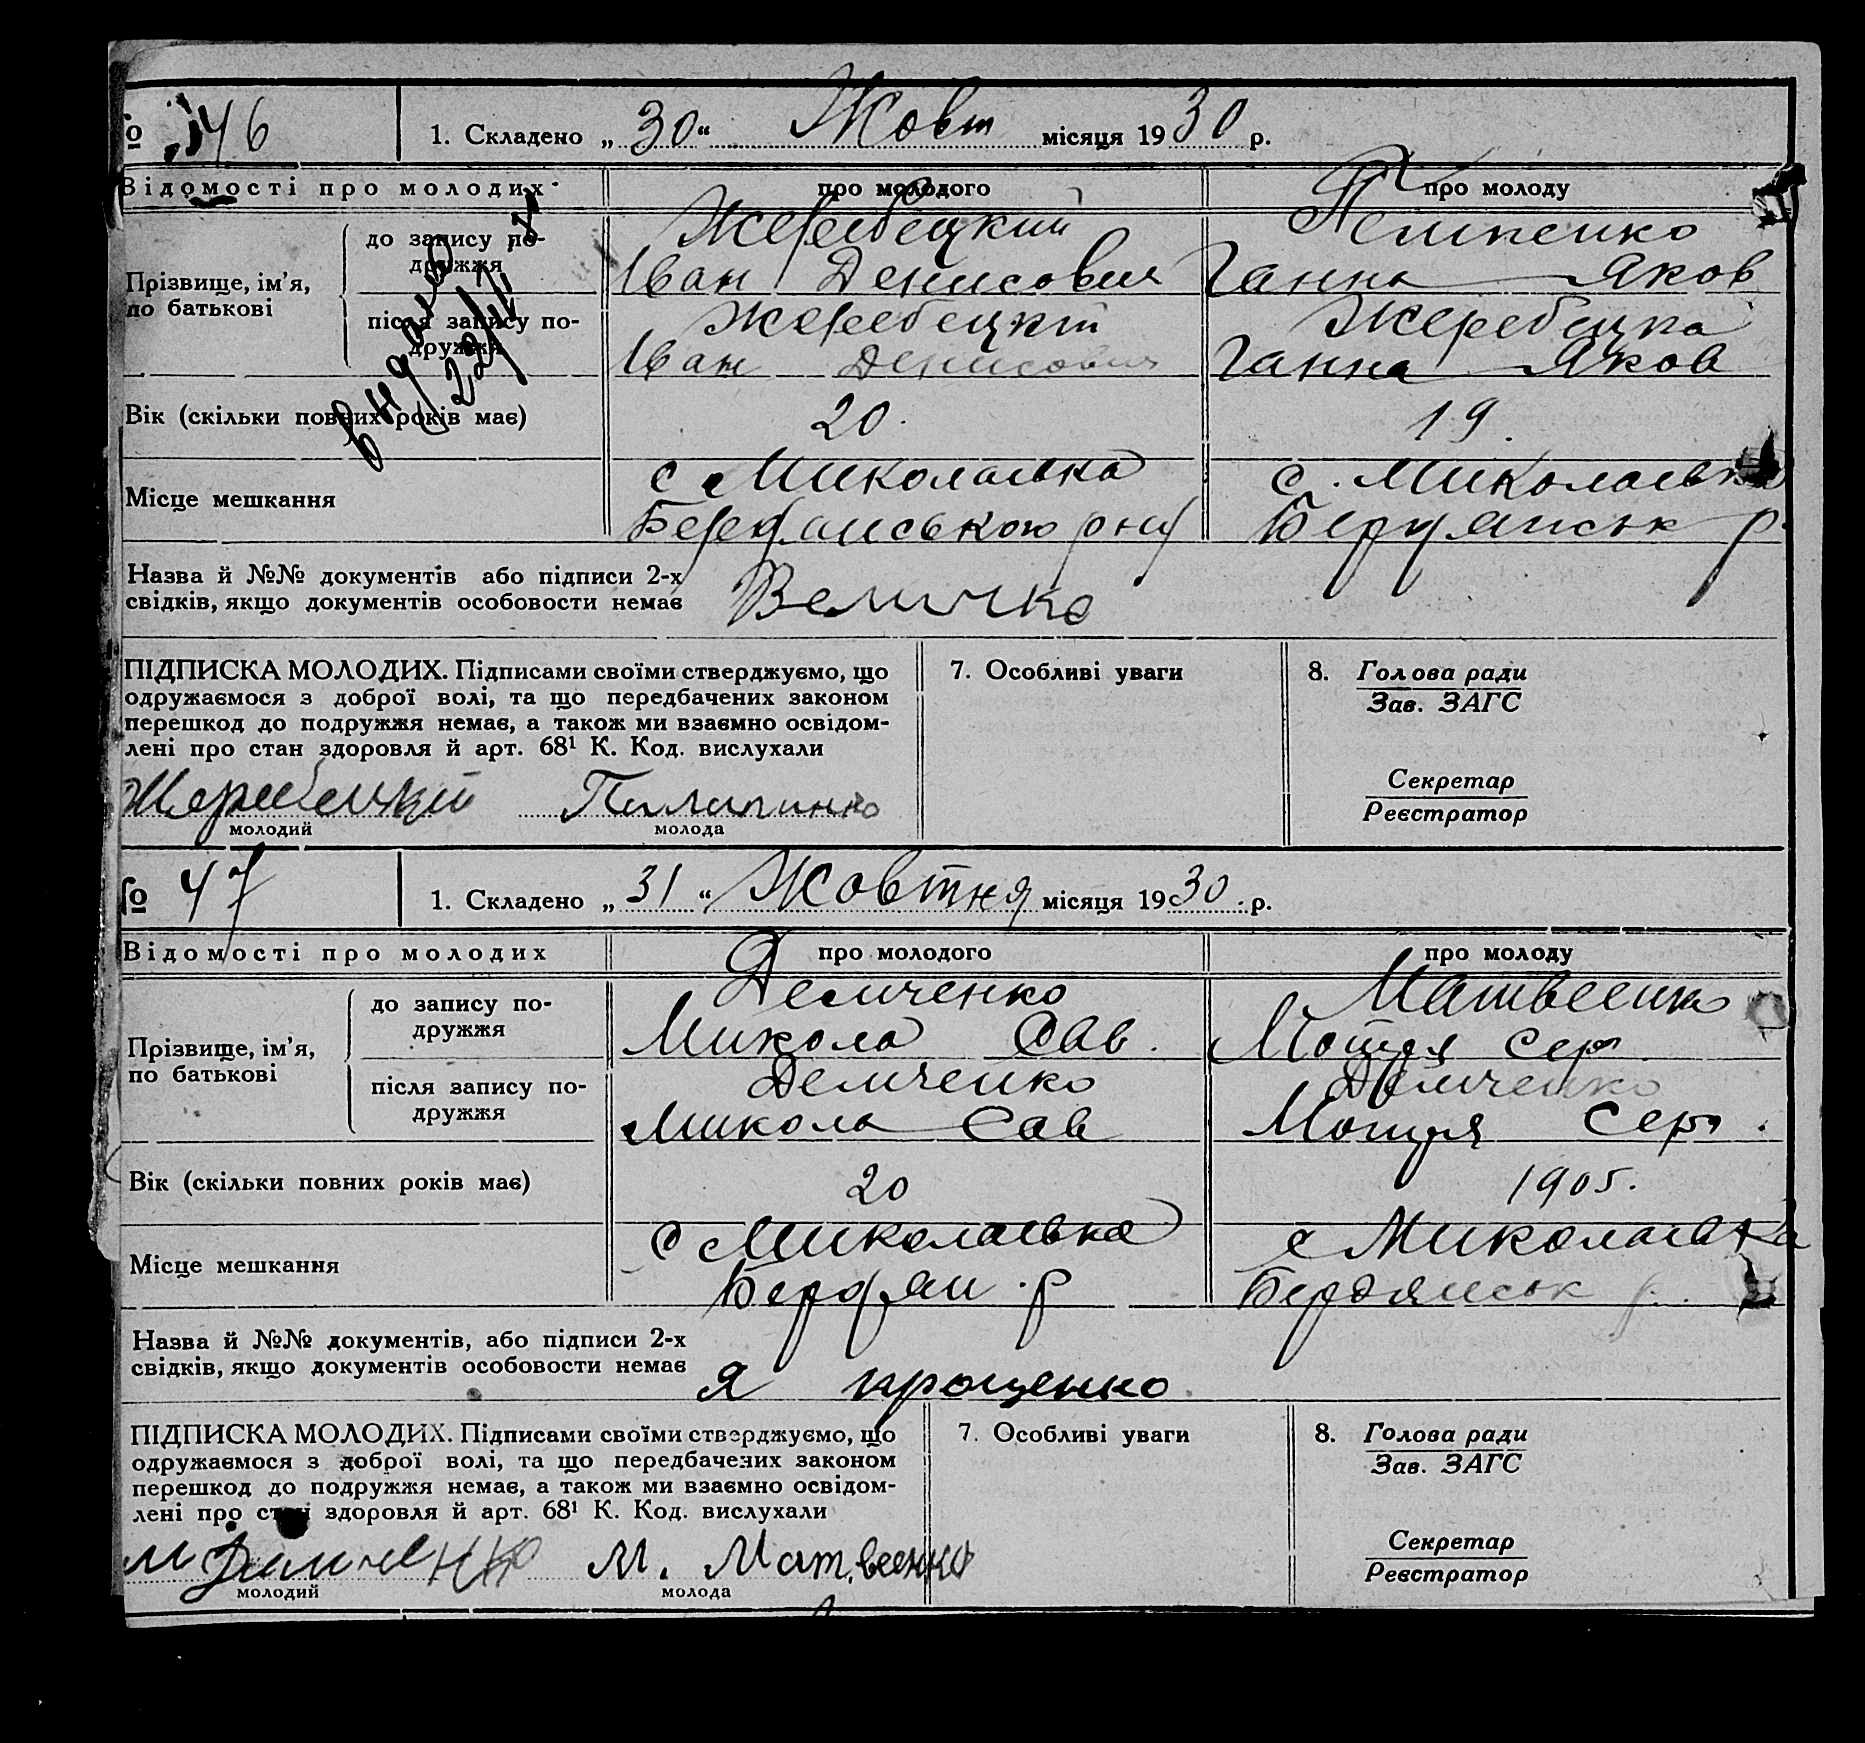 № 46 1. Складено „30“ Жовт місяця 1930 р.
Відомості про молодих про молодого про молоду
Прізвище, ім’я, по батькові
до запису подружжя
Жеребецкий
Іван Денисович
Ганна Яков
після запису подружжя
Жеребецкий Жеребецка
Іван Денисович Ганна Яков
видано 22/VII
Вік (скільки повних років має) 20. 19.
Місце мешкання
с Миколаївка с. Миколаївка
Бердянського р-ну Бердянськ р.
Назва й №№ документів або підписи 2-х
свідків, якщо документів особовости немає Величко
ПІДПИСКА МОЛОДИХ. Підписами своїми стверджуємо, що
одружаємося з доброї волі, та що передбачених законом
перешкод до подружжя немає, а також ми взаємно освідом-
лені про стан здоровля й арт. 68¹ К. Код. вислухали
молодий молода
7. Особливі уваги
8. Голова ради
Зав. ЗАГС
Секретар
Реєстратор
№ 47 1. Складено „31“ Жовтня місяця 1930 р.
Відомості про молодих про молодого про молоду
Прізвище, ім’я,
по батькові
до запису по-
дружжя
Демченко Матвеенко
Микола Сав. Мотря Сер
після запису по-
дружжя
Демченко Демченко
Микола Сав Мотря Сер.
Вік (скільки повних років має) 20 1905.
Місце мешкання
с Миколаївка с Миколаївка
Бердян. р Бердянськ р.
Назва й №№ документів, або підписи 2-х
свідків, якщо документів особовости немає Я Крощенко
ПІДПИСКА МОЛОДИХ. Підписами своїми стверджуємо, що
одружаємося з доброї волі, та що передбачених законом
перешкод до подружжя немає, а також ми взаємно освідом-
лені про стан здоровля й арт. 68¹ К. Код. вислухали
М Демченко М. Матвеенко
молодий молода
7. Особливі уваги
8. Голова ради
Зав. ЗАГС
Секретар
Реєстратор